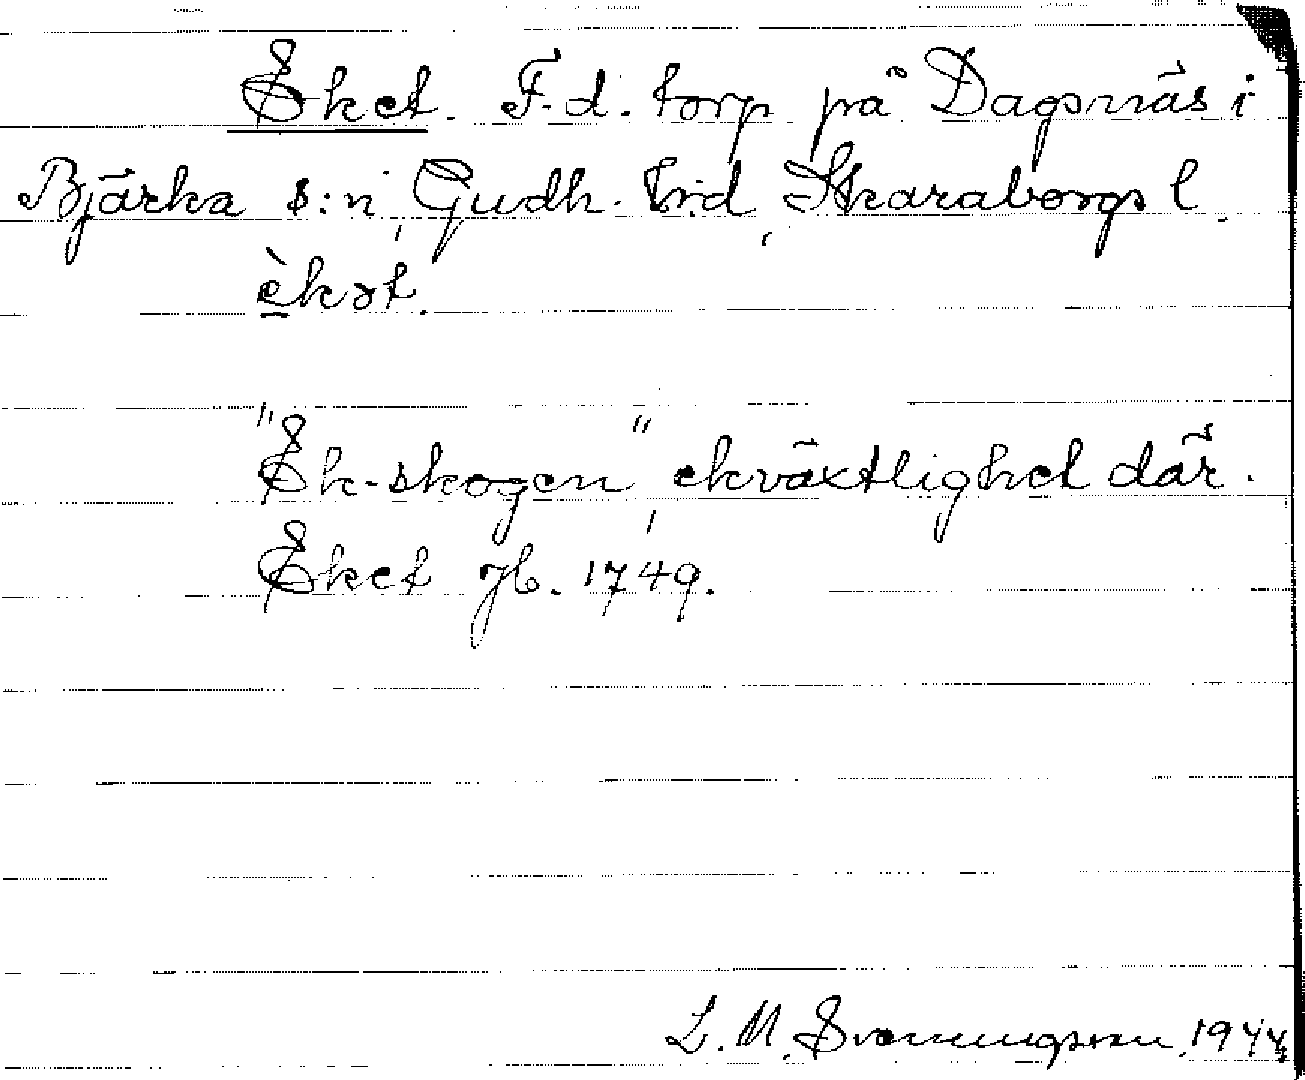 Eket. F.d. torp på Dagsnäs i
Bjärka s:n, Gudh. hrd, Skaraborgs l.
èkət.
"Ek-skogen", ekväxtlighet där.
Eket jb. 1749.
L. M. Svenungsson 1944